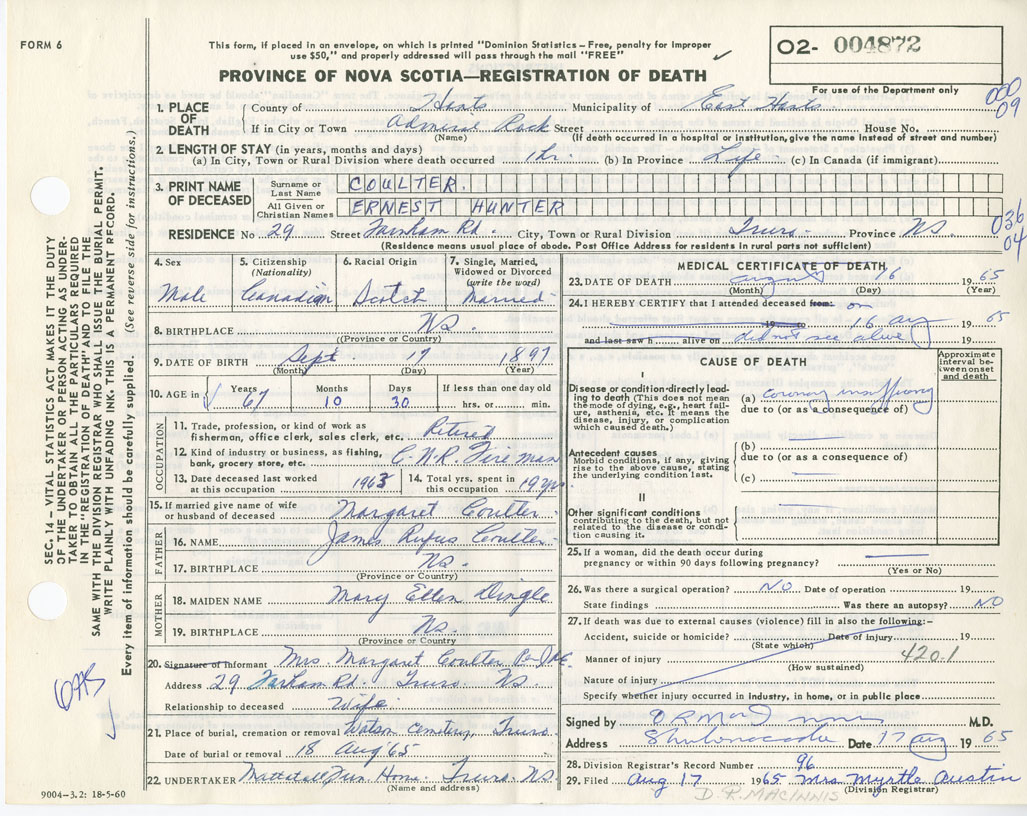 FORM 6
This form, if placed in an envelope, on which is printed "Dominion Statistics – Free, penalty for improper
use $50," and properly addressed will pass through the mail "FREE"
PROVINCE OF NOVA SCOTIA—REGISTRATION OF DEATH
02- 004872
For use of the Department only
000
09
1. PLACE OF DEATH
County of Hants Municipality of East Hants
If in City or Town Admiral Rock Street House No.
(Name) (If death occurred in a hospital or institution, give the name instead of street and number)
2. LENGTH OF STAY (in years, months and days)
(a) In City, Town or Rural Division where death occurred 1 hr. (b) In Province Life (c) In Canada (if immigrant)
3. PRINT NAME OF DECEASED
Surname or Last Name COULTER.
All Given or Christian Names ERNEST HUNTER
036
04
RESIDENCE No 29 Street Farnham Rd. City, Town or Rural Division Truro Province NS.
(Residence means usual place of abode. Post Office Address for residents in rural parts not sufficient)
4. Sex
Male
5. Citizenship
(Nationality)
Canadian
6. Racial Origin
Scotch
7. Single, Married,
Widowed or Divorced
(write the word)
Married
8. BIRTHPLACE NS.
(Province or Country)
9. DATE OF BIRTH Sept 17 1897
(Month) (Day) (Year)
10. AGE in Years 67 Months 10 Days 30 If less than one day old
hrs. or min.
OCCUPATION
11. Trade, profession, or kind of work as
fisherman, office clerk, sales clerk, etc. Retired
12. Kind of industry or business, as fishing,
bank, grocery store, etc. C.N.R. Fireman
13. Date deceased last worked
at this occupation 1963
14. Total yrs. spent in
this occupation 19 yrs.
15. If married give name of wife
or husband of deceased Margaret Coulter
FATHER
16. NAME James Rufus Coulter
17. BIRTHPLACE NS.
(Province or Country)
MOTHER
18. MAIDEN NAME Mary Ellen Dingle
19. BIRTHPLACE NS.
(Province or Country)
20. Signature of Informant Mrs. Margaret Coulter
Address 29 Farnham Rd. Truro NS.
Relationship to deceased Wife
21. Place of burial, cremation or removal Watson Cemetery, Truro
Date of burial or removal 18 Aug '65
22. UNDERTAKER Mattatall Fun Home. Truro NS
(Name and address)
9004-3.2: 18-5-60
MEDICAL CERTIFICATE OF DEATH
23. DATE OF DEATH August 16 1965
(Month) (Day) (Year)
24. I HEREBY CERTIFY that I attended deceased from: on
19 16 aug 1965
and last saw h alive on did not see alive 19
CAUSE OF DEATH
Approximate interval between onset and death
I
Disease or condition directly leading to death (This does not mean the mode of dying, e.g., heart failure, asthenia, etc. It means the disease, injury, or complication which caused death.)
(a) coronary insufficiency
due to (or as a consequence of)
Antecedent causes
Morbid conditions, if any, giving rise to the above cause, stating the underlying condition last.
(b)
due to (or as a consequence of)
(c)
II
Other significant conditions
contributing to the death, but not related to the disease or condition causing it.
25. If a woman, did the death occur during
pregnancy or within 90 days following pregnancy?
(Yes or No)
26. Was there a surgical operation? NO Date of operation 19
State findings Was there an autopsy? NO
27. If death was due to external causes (violence) fill in also the following:–
Accident, suicide or homicide? Date of injury 19
(State which)
Manner of injury 420.1
(How sustained)
Nature of injury
Specify whether injury occurred in industry, in home, or in public place
Signed by M.D.
Address Shubenacadie Date 17 aug 1965
28. Division Registrar's Record Number 96
29. Filed Aug 17 1965 Mrs Myrtle Austin
(Division Registrar)
D. R. MACINNIS
SEC. 14 – VITAL STATISTICS ACT MAKES IT THE DUTY
OF THE UNDERTAKER OR PERSON ACTING AS UNDER-
TAKER TO OBTAIN ALL THE PARTICULARS REQUIRED
IN THE "REGISTRATION OF DEATH" AND TO FILE THE
SAME WITH THE DIVISION REGISTRAR WHO SHALL ISSUE THE BURIAL PERMIT.
WRITE PLAINLY WITH UNFADING INK. THIS IS A PERMANENT RECORD.
Every item of information should be carefully supplied. (See reverse side for instructions.)